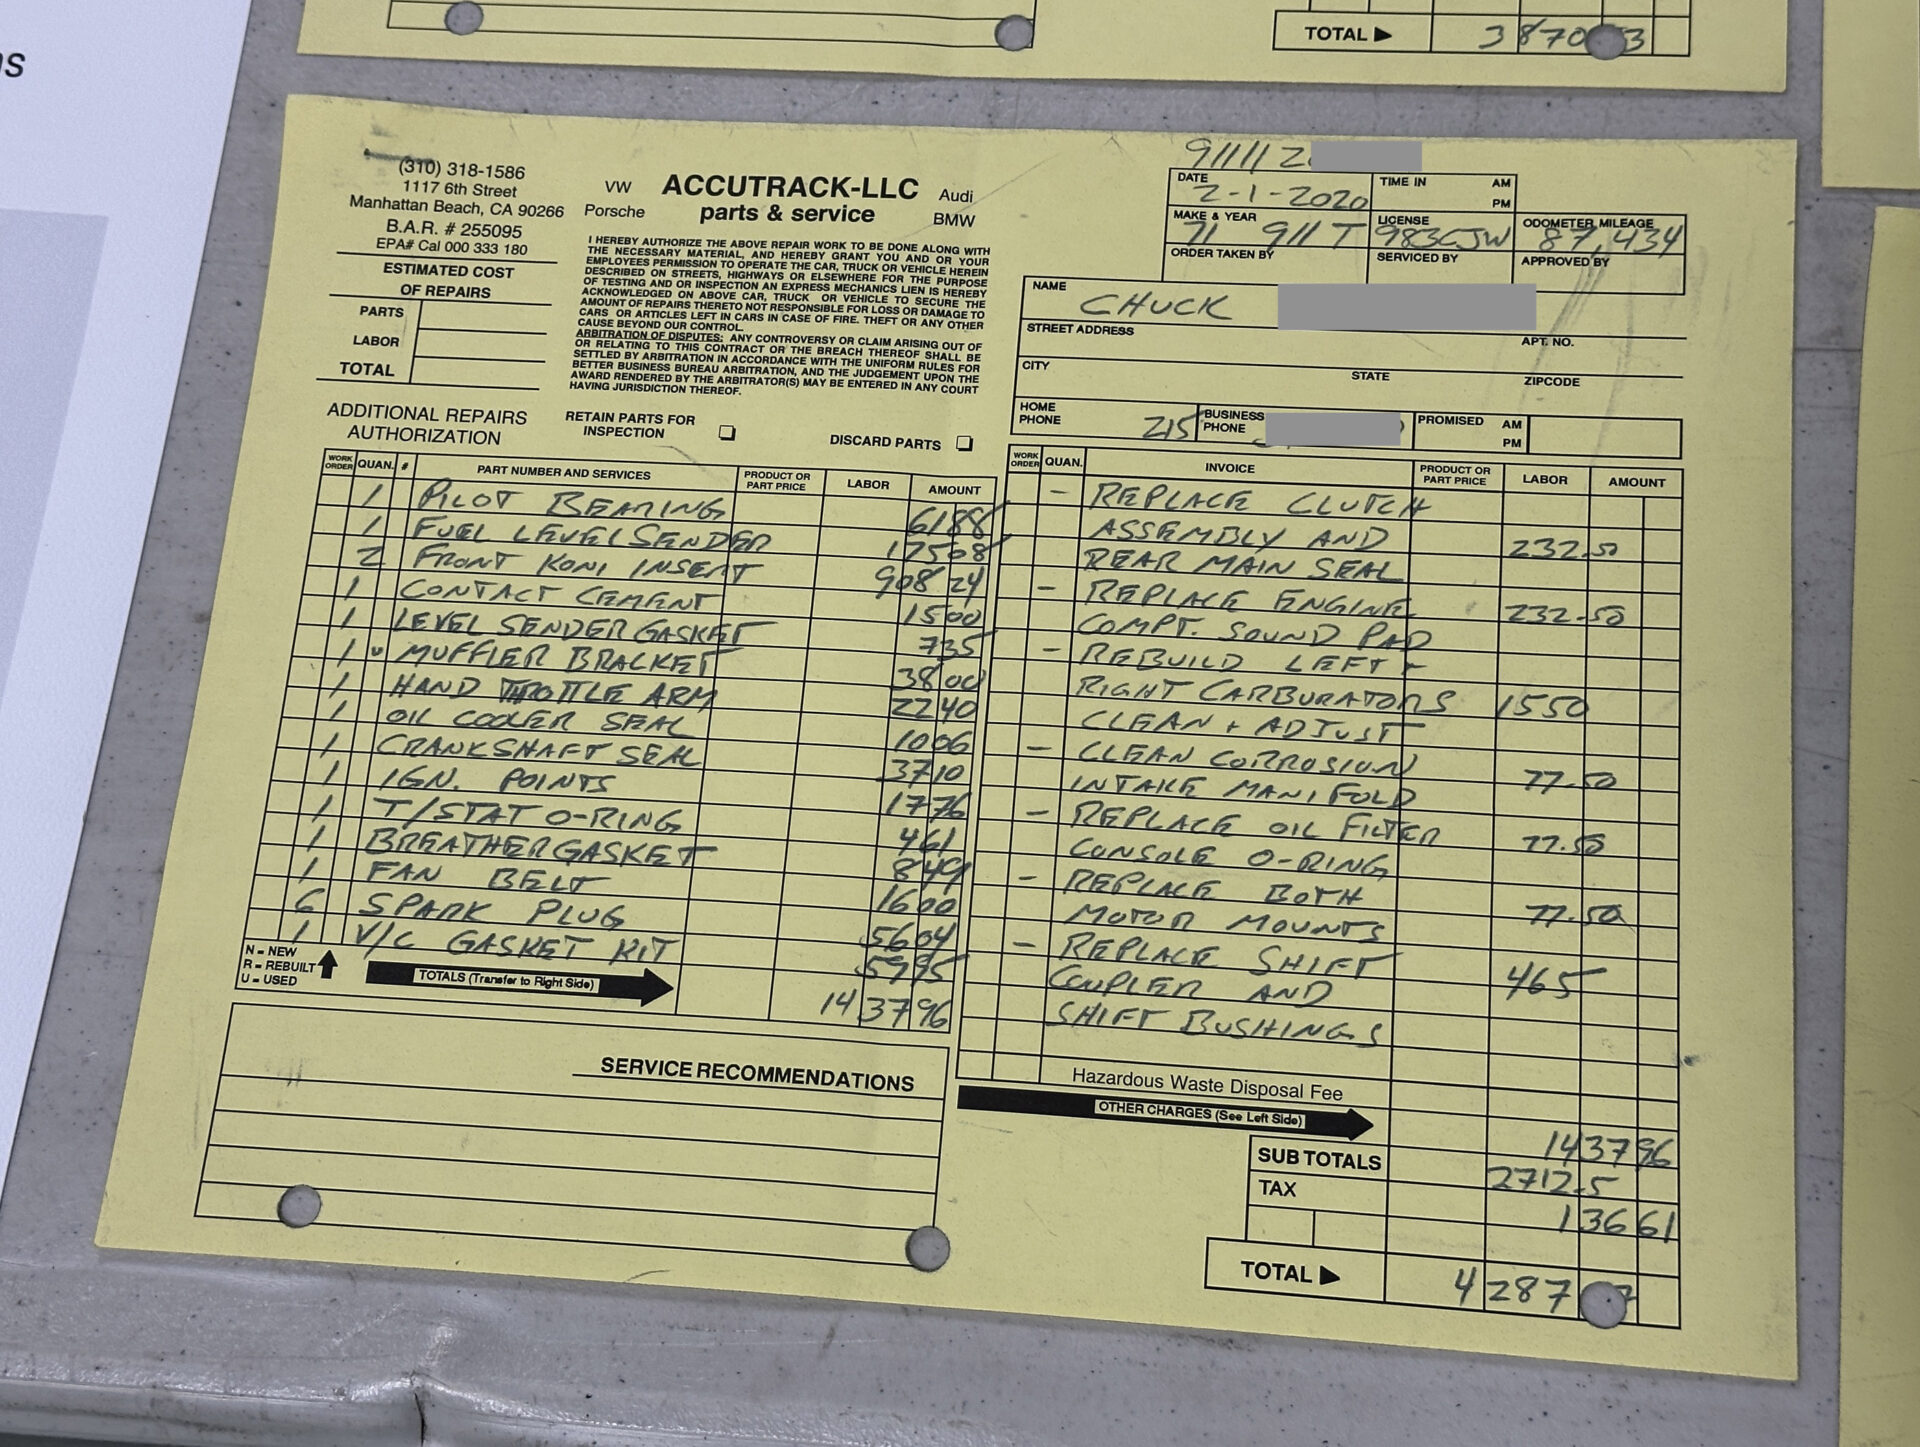 ns
TOTAL ▶ 3870 3
(310) 318-1586
1117 6th Street
Manhattan Beach, CA 90266
B.A.R. # 255095
EPA# Cal 000 333 180
ESTIMATED COST
OF REPAIRS
PARTS
LABOR
TOTAL
VW ACCUTRACK-LLC Audi
Porsche parts & service BMW
I HEREBY AUTHORIZE THE ABOVE REPAIR WORK TO BE DONE ALONG WITH
THE NECESSARY MATERIAL, AND HEREBY GRANT YOU AND OR YOUR
EMPLOYEES PERMISSION TO OPERATE THE CAR, TRUCK OR VEHICLE HEREIN
DESCRIBED ON STREETS, HIGHWAYS OR ELSEWHERE FOR THE PURPOSE
OF TESTING AND/OR INSPECTION AN EXPRESS MECHANICS LIEN IS HEREBY
ACKNOWLEDGED ON ABOVE CAR, TRUCK OR VEHICLE TO SECURE THE
AMOUNT OF REPAIRS THERETO NOT RESPONSIBLE FOR LOSS OR DAMAGE TO
CARS OR ARTICLES LEFT IN CARS IN CASE OF FIRE. THEFT OR ANY OTHER
CAUSE BEYOND OUR CONTROL.
ARBITRATION OF DISPUTES: ANY CONTROVERSY OR CLAIM ARISING OUT OF
OR RELATING TO THIS CONTRACT OR THE BREACH THEREOF SHALL BE
SETTLED BY ARBITRATION IN ACCORDANCE WITH THE UNIFORM RULES FOR
BETTER BUSINESS BUREAU ARBITRATION, AND THE JUDGEMENT UPON THE
AWARD RENDERED BY THE ARBITRATOR(S) MAY BE ENTERED IN ANY COURT
HAVING JURISDICTION THEREOF.
91112
DATE 2-1-2020 TIME IN AM PM
MAKE & YEAR 71 911T LICENSE 983CJW ODOMETER MILEAGE 87,434
ORDER TAKEN BY SERVICED BY APPROVED BY
NAME CHUCK
STREET ADDRESS APT. NO.
CITY STATE ZIPCODE
HOME PHONE 215 BUSINESS PHONE PROMISED AM PM
ADDITIONAL REPAIRS
AUTHORIZATION
RETAIN PARTS FOR
INSPECTION
DISCARD PARTS
WORK ORDER QUAN. # PART NUMBER AND SERVICES PRODUCT OR PART PRICE LABOR AMOUNT
1 PILOT BEARING 6188
1 FUEL LEVEL SENDER 17508
2 FRONT KONI INSERT 908 24
1 CONTACT CEMENT 1500
1 LEVEL SENDER GASKET 735
1 U MUFFLER BRACKET 3800
1 HAND THROTTLE ARM 2240
1 OIL COOLER SEAL 1006
1 CRANKSHAFT SEAL 3710
1 IGN. POINTS 1776
1 T/STAT O-RING 461
1 BREATHER GASKET 849
1 FAN BELT 1600
6 SPARK PLUG 5604
1 V/C GASKET KIT 5995
N - NEW
R - REBUILT
U - USED
TOTALS (Transfer to Right Side) 143796
SERVICE RECOMMENDATIONS
WORK ORDER QUAN. INVOICE PRODUCT OR PART PRICE LABOR AMOUNT
- REPLACE CLUTCH
ASSEMBLY AND 232.50
REAR MAIN SEAL
- REPLACE ENGINE 232.50
COMPT. SOUND PAD
- REBUILD LEFT +
RIGHT CARBURATORS 1550
CLEAN + ADJUST
- CLEAN CORROSION 77.50
INTAKE MANIFOLD
- REPLACE OIL FILTER 77.50
CONSOLE O-RING
- REPLACE BOTH 77.50
MOTOR MOUNTS
- REPLACE SHIFT 465
COUPLER AND
SHIFT BUSHINGS
Hazardous Waste Disposal Fee
OTHER CHARGES (See Left Side)
SUB TOTALS 143796
TAX 2712.5
13661
TOTAL ▶ 4287 7